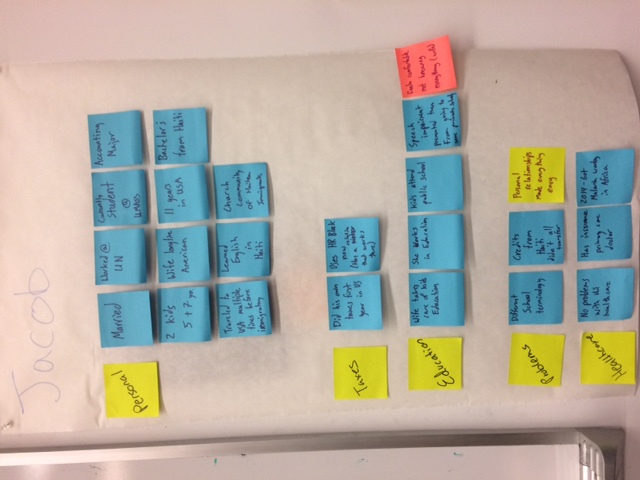 Jacob
Personal
Married
Worked @
UN
Currently
Student
@
UMASS
Accounting
Major
2 kids
5 + 7 yrs
Wife longtime
American
11 years
in USA
Bachelors
from Haiti
Traveled to
USA multiple
times before
immigrating
Learned
English
in
Haiti
Church
Community
of Haitian
Immigrants
Taxes
Did his own
taxes first
year in US
Uses HR Block
now
(Has a relative
that works
there)
Education
Wife takes
care of kids
Education
She works
in Education
Kids attend
public school
Speech
impairment
prevented them
from going to
some private schools
comfortable
not knowing
everything (wife)
Problems
Different
School
terminology
Credits
from
Haiti
didn't all
transfer
Personal
relationships
Made everything
easy
Healthcare
No problems
with
healthcare
Has insurance
primary care
doctor
2014 - Got
Malaria
in Africa